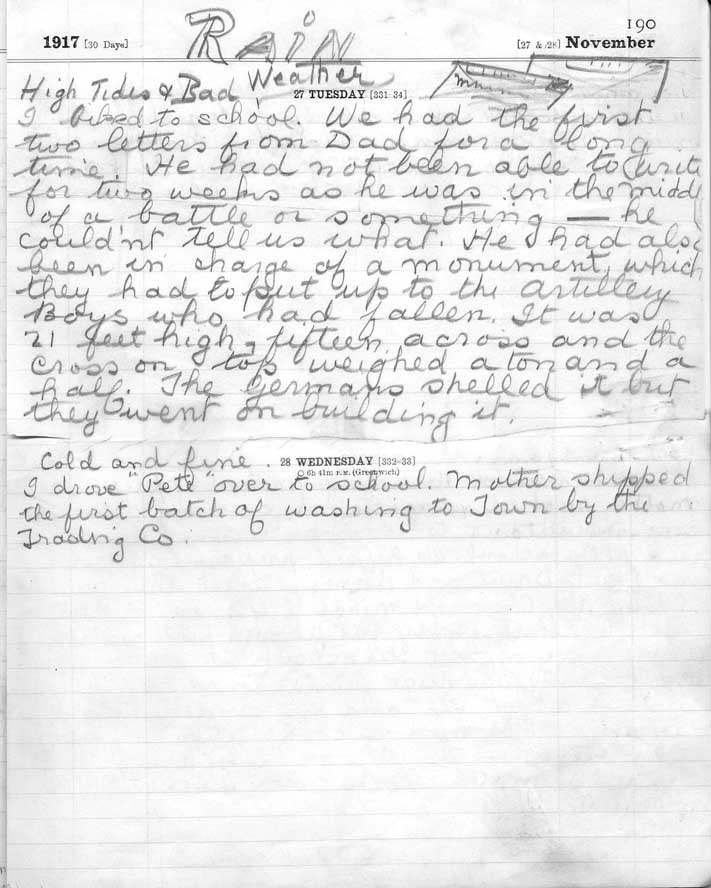 190
1917 [30 Days] RAIN [27 & 28] November
High Tides & Bad Weather
27 TUESDAY [331-34]
I biked to school. We had the first
two letters from Dad for a long
time. He had not been able to write
for two weeks as he was in the midd
of a battle or something — he
could'nt tell us what. He had also
been in charge of a monument, which
they had to put up to the artillery
Boys who had fallen. It was
21 feet high, fifteen across and the
cross on top weighed a ton and a
half. The Germans shelled it but
they went on building it.
Cold and fine. 28 WEDNESDAY [332-33]
6h 41m P.M. (Greenwich)
I drove "Pete" over to school. Mother shipped
the first batch of washing to Town by the
Trading Co.